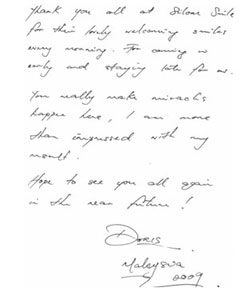 Thank you all at Silom Smile
for their lovely welcoming smiles
every morning. For coming in
early and staying late for us.
You really make miracles
happen here, I am more
than impressed with my
result.
Hope to see you all again
in the near future!
Doris
Malaysia
2009